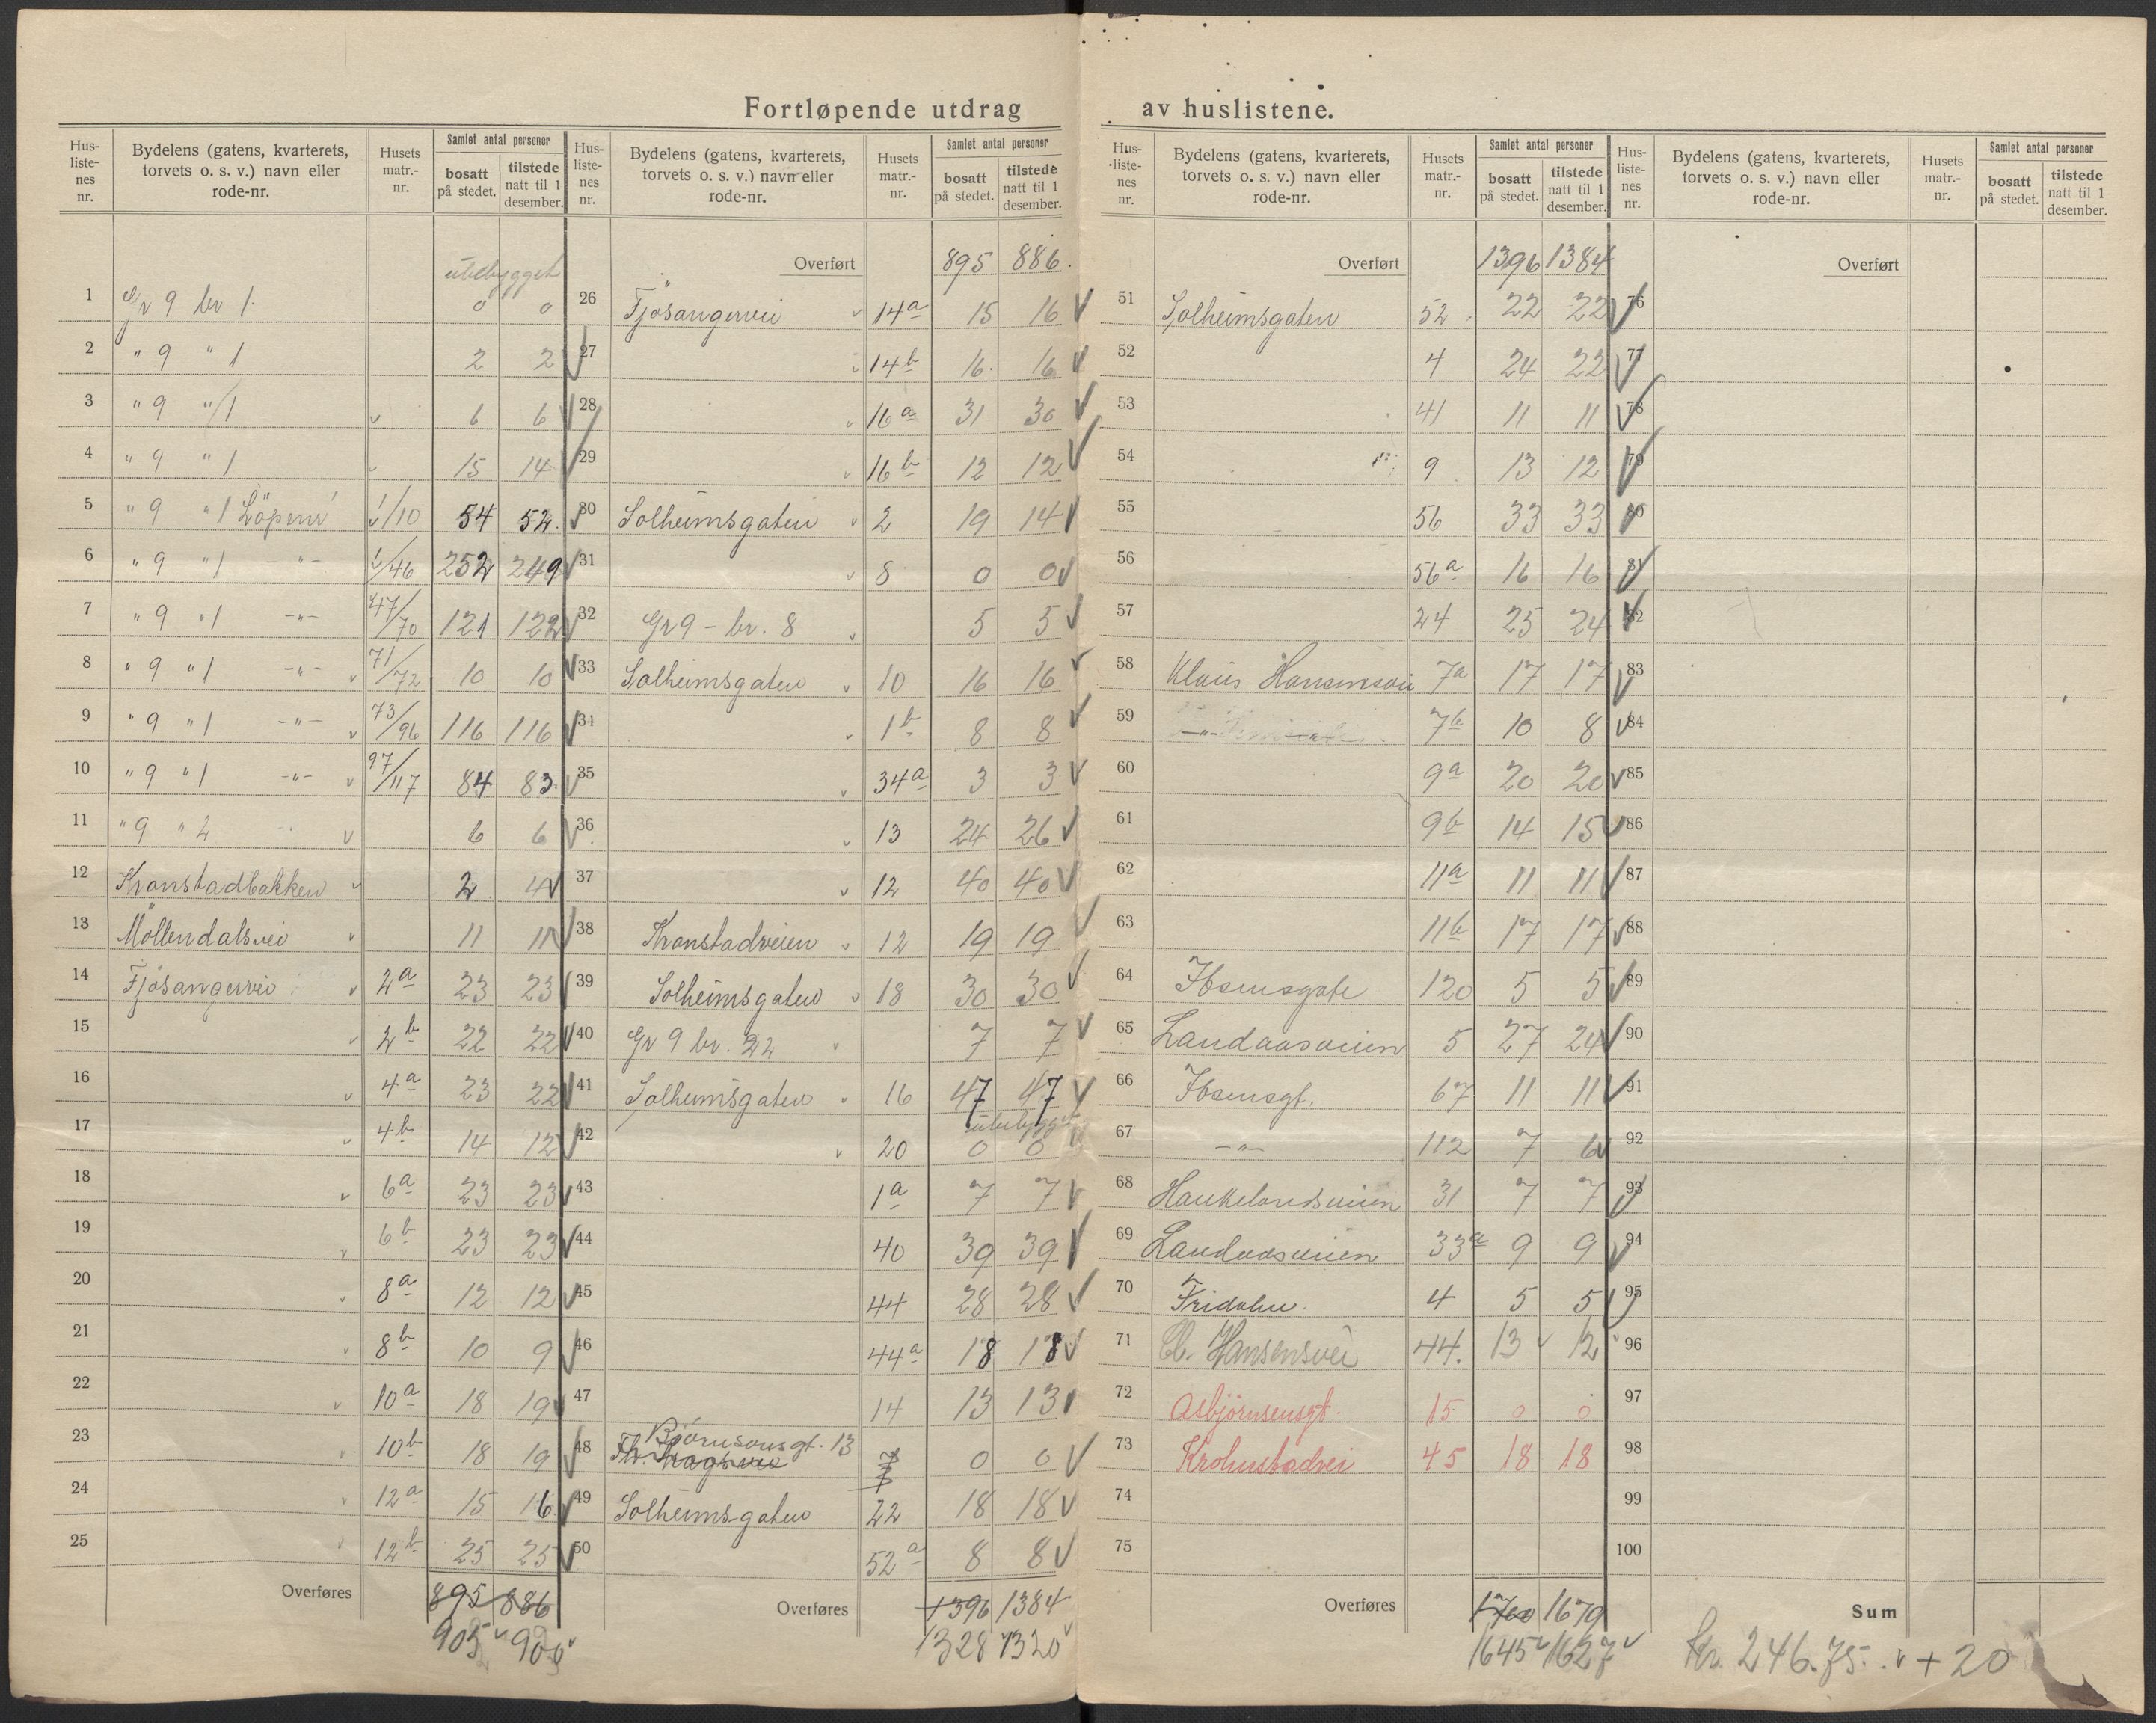 Fortløpende utdrag av huslistene.
Hus-liste-nes nr. | Bydelens (gatens, kvarterets, torvets o. s. v.) navn eller rode-nr. | Husets matr.-nr. | Samlet antal personer | bosatt på stedet. | tilstede natt til 1 desember.
ubebygget
1 Gr 9 br 1. 0 0
2 " 9 " 1 2 2
3 " 9 " 1 6 6
4 " 9 " 1 15 14
5 " 9 " 1 Löpenr 1/10 54 52.
6 " 9 " 1 -"- 1/46 252 249
7 " 9 " 1 -"- 47/70 121 122
8 " 9 " 1 -"- 71/72 10 10
9 " 9 " 1 -"- 73/96 116 116
10 " 9 " 1 -"- 97/117 84 83.
11 " 9 " 2 6 6
12 Kronstadbakken 2 4
13 Möllendalsvei 11 11
14 Fjösangervei 2a 23 23
15 2b 22 22
16 4a 23 22
17 4b 14 12
18 6a 23 23
19 6b 23 23
20 8a 12 12
21 8b 10 9
22 10a 18 19
23 10b 18 19
24 12a 15 16
25 12b 25 25
Overføres 895 886
905 900
Hus-liste-nes nr. | Bydelens (gatens, kvarterets, torvets o. s. v.) navn eller rode-nr. | Husets matr.-nr. | Samlet antal personer | bosatt på stedet. | tilstede natt til 1 desember.
Overført 895 886.
26 Fjösangervei 14a 15 16
27 14b 16. 16
28 16a 31 30
29 16b 12 12
30 Solheimsgaten 2 19 14
31 8 0 0
32 Gr 9 - br. 8 5 5
33 Solheimsgaten 10 16 16
34 1b 8 8
35 34a 3 3
36 13 24 26
37 12 40 40
38 Kronstadveien 12 19 19
39 Solheimsgaten 18 30 30
40 Gr 9 br. 22 7 7
41 Solheimsgaten 16 47 47
ubebygget
42 20 0 0
43 1a 7 7
44 40 39 39
45 44 28 28
46 44a 18 18
47 14 13 13
Björnsonsgt. 13
48 7 0 0
49 Solheimsgaten 22 18 18
50 52a 8 8
Overføres 1396 1384
1328 1320
Hus-liste-nes nr. | Bydelens (gatens, kvarterets, torvets o. s. v.) navn eller rode-nr. | Husets matr.-nr. | Samlet antal personer | bosatt på stedet. | tilstede natt til 1 desember.
Overført 1396 1384
51 Solheimsgaten 52 22 22
52 4 24 22
53 41 11 11
54 9 13 12
55 56 33 33
56 56a 16 16
57 24 25 24
58 Klaus Hansensvei 7a 17 17
59 -"- 7b 10 8
60 9a 20 20
61 9b 14 15
62 11a 11 11
63 11b 17 17
64 Ibsensgate 120 5 5
65 Landaasveien 5 27 24
66 Ibsensgt. 67 11 11
67 -"- 112 7 6
68 Haukelandsveien 31 7 7
69 Landaasveien 33a 9 9
70 Fridalen. 4 5 5
71 Cl. Hansensvei 44. 13 12
72 Asbjörnsensgt. 15 0 0
73 Krohnstadvei 45 18 18
74
75
Overføres 1700 1679
1645 1627
Hus-liste-nes nr. | Bydelens (gatens, kvarterets, torvets o. s. v.) navn eller rode-nr. | Husets matr.-nr. | Samlet antal personer | bosatt på stedet. | tilstede natt til 1 desember.
Overført
76
77
78
79
80
81
82
83
84
85
86
87
88
89
90
91
92
93
94
95
96
97
98
99
100
Sum
Kr. 246.75. + 20